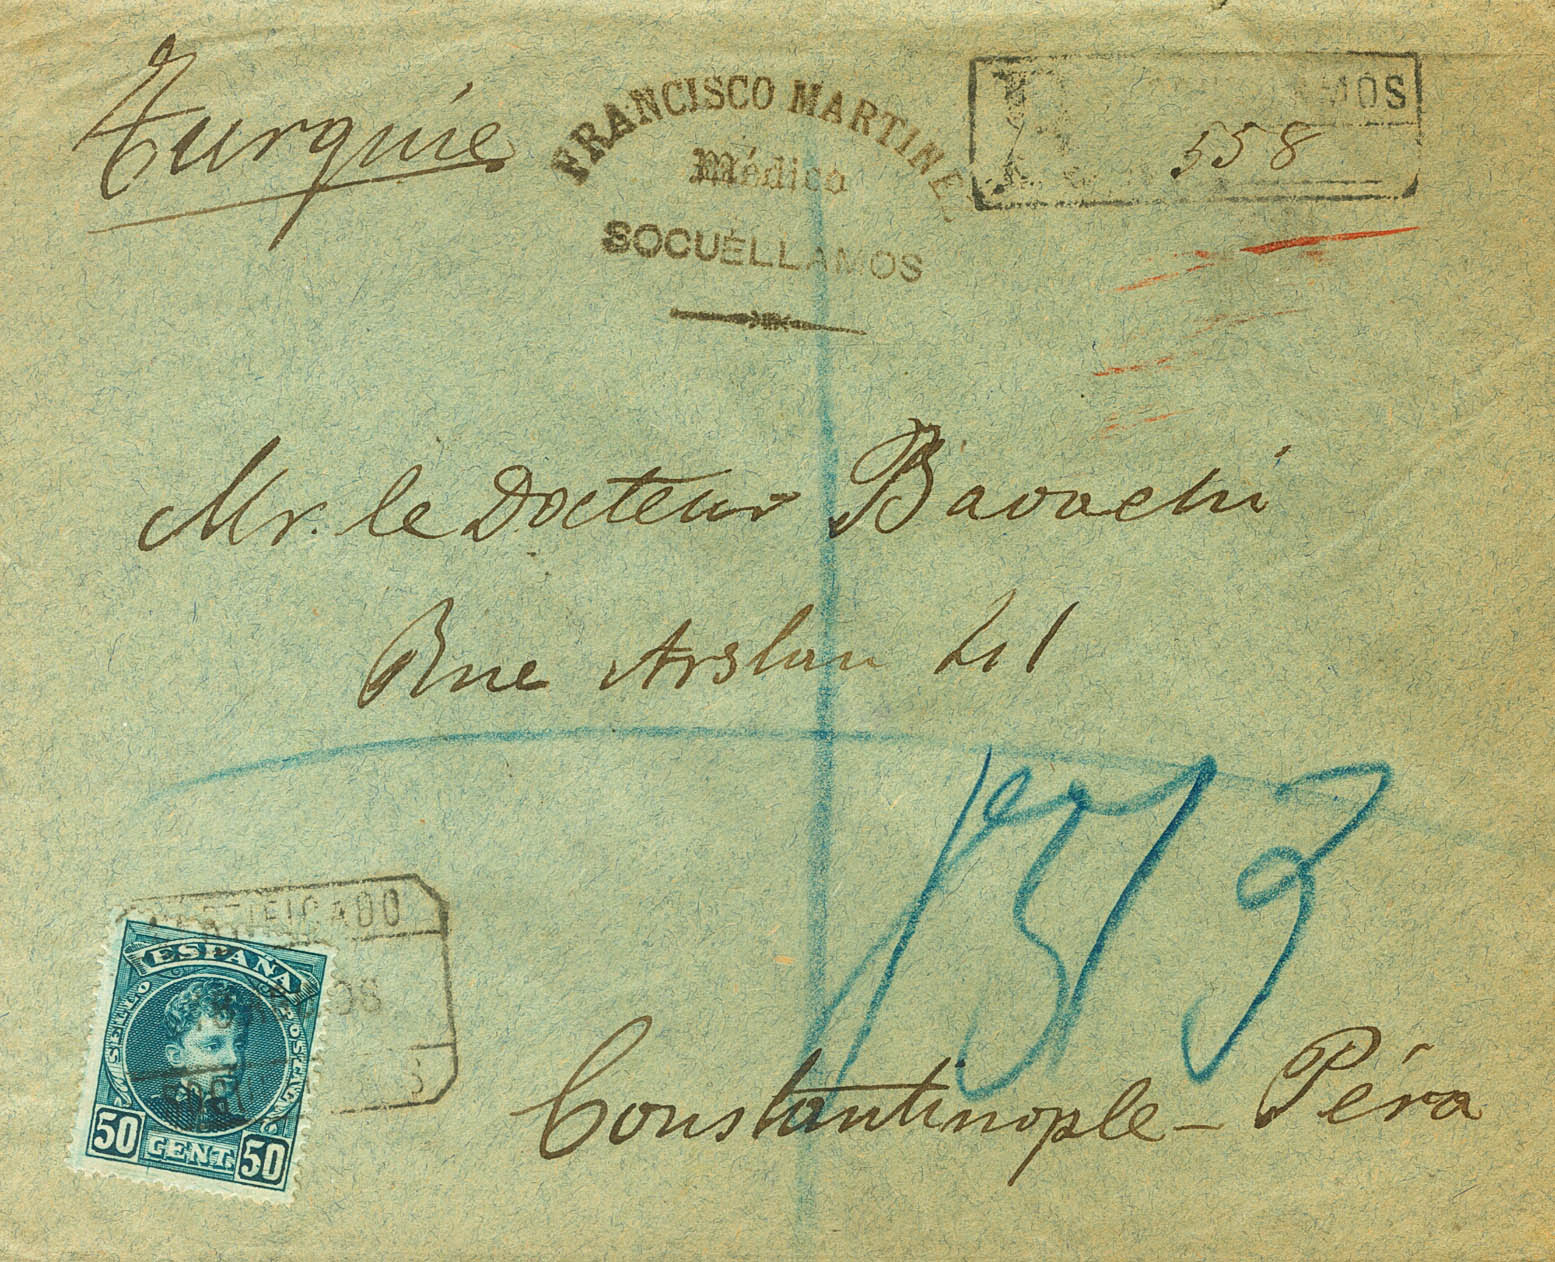 Turquie
FRANCISCO MARTINE
Médico
SOCUÉLLAMOS
R
558
Mr. le Docteur
Rue Arslan
1513
CERTIFICADO
ESPAÑA
SELLO POSTAL
50 CENT. 50
Constantinople – Péra